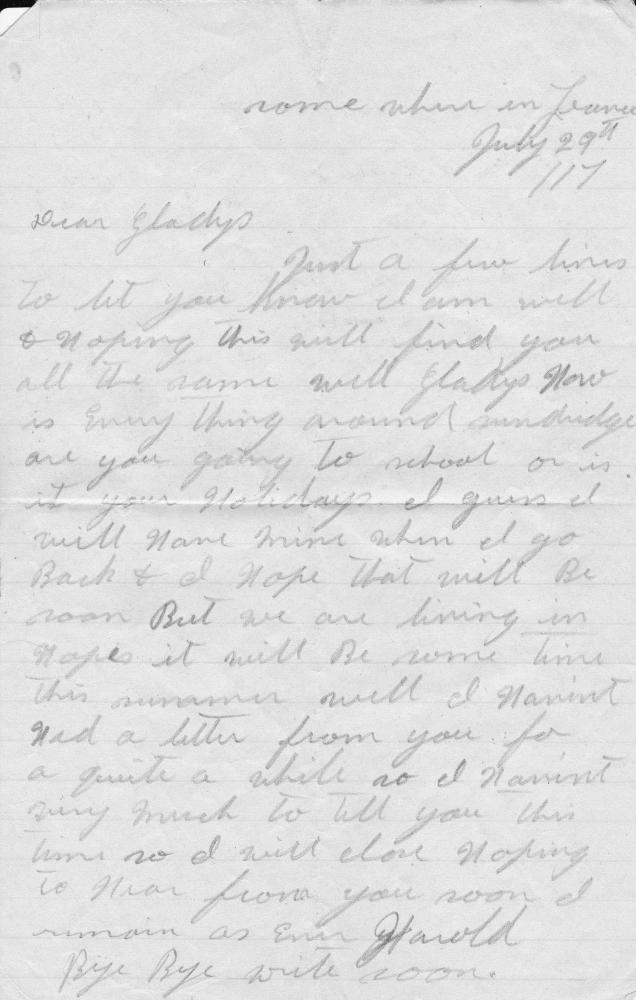 some where in France
July 29th
/17
Dear Gladys
Just a few lines
to let you know I am well
& Hoping this will find you
all the same well Gladys How
is Every thing around sundridge
are you going to school or is
it your Holidays. I guess I
will Have mine when I go
Back & I Hope that will Be
soon But we are living in
Hopes it will Be some time
this summer well I Havint
Had a letter from you fo
a quite a while so I Havint
very much to tell you this
time so I will close Hoping
to Hear from you soon I
remain as Ever Harold
Bye Bye write soon.